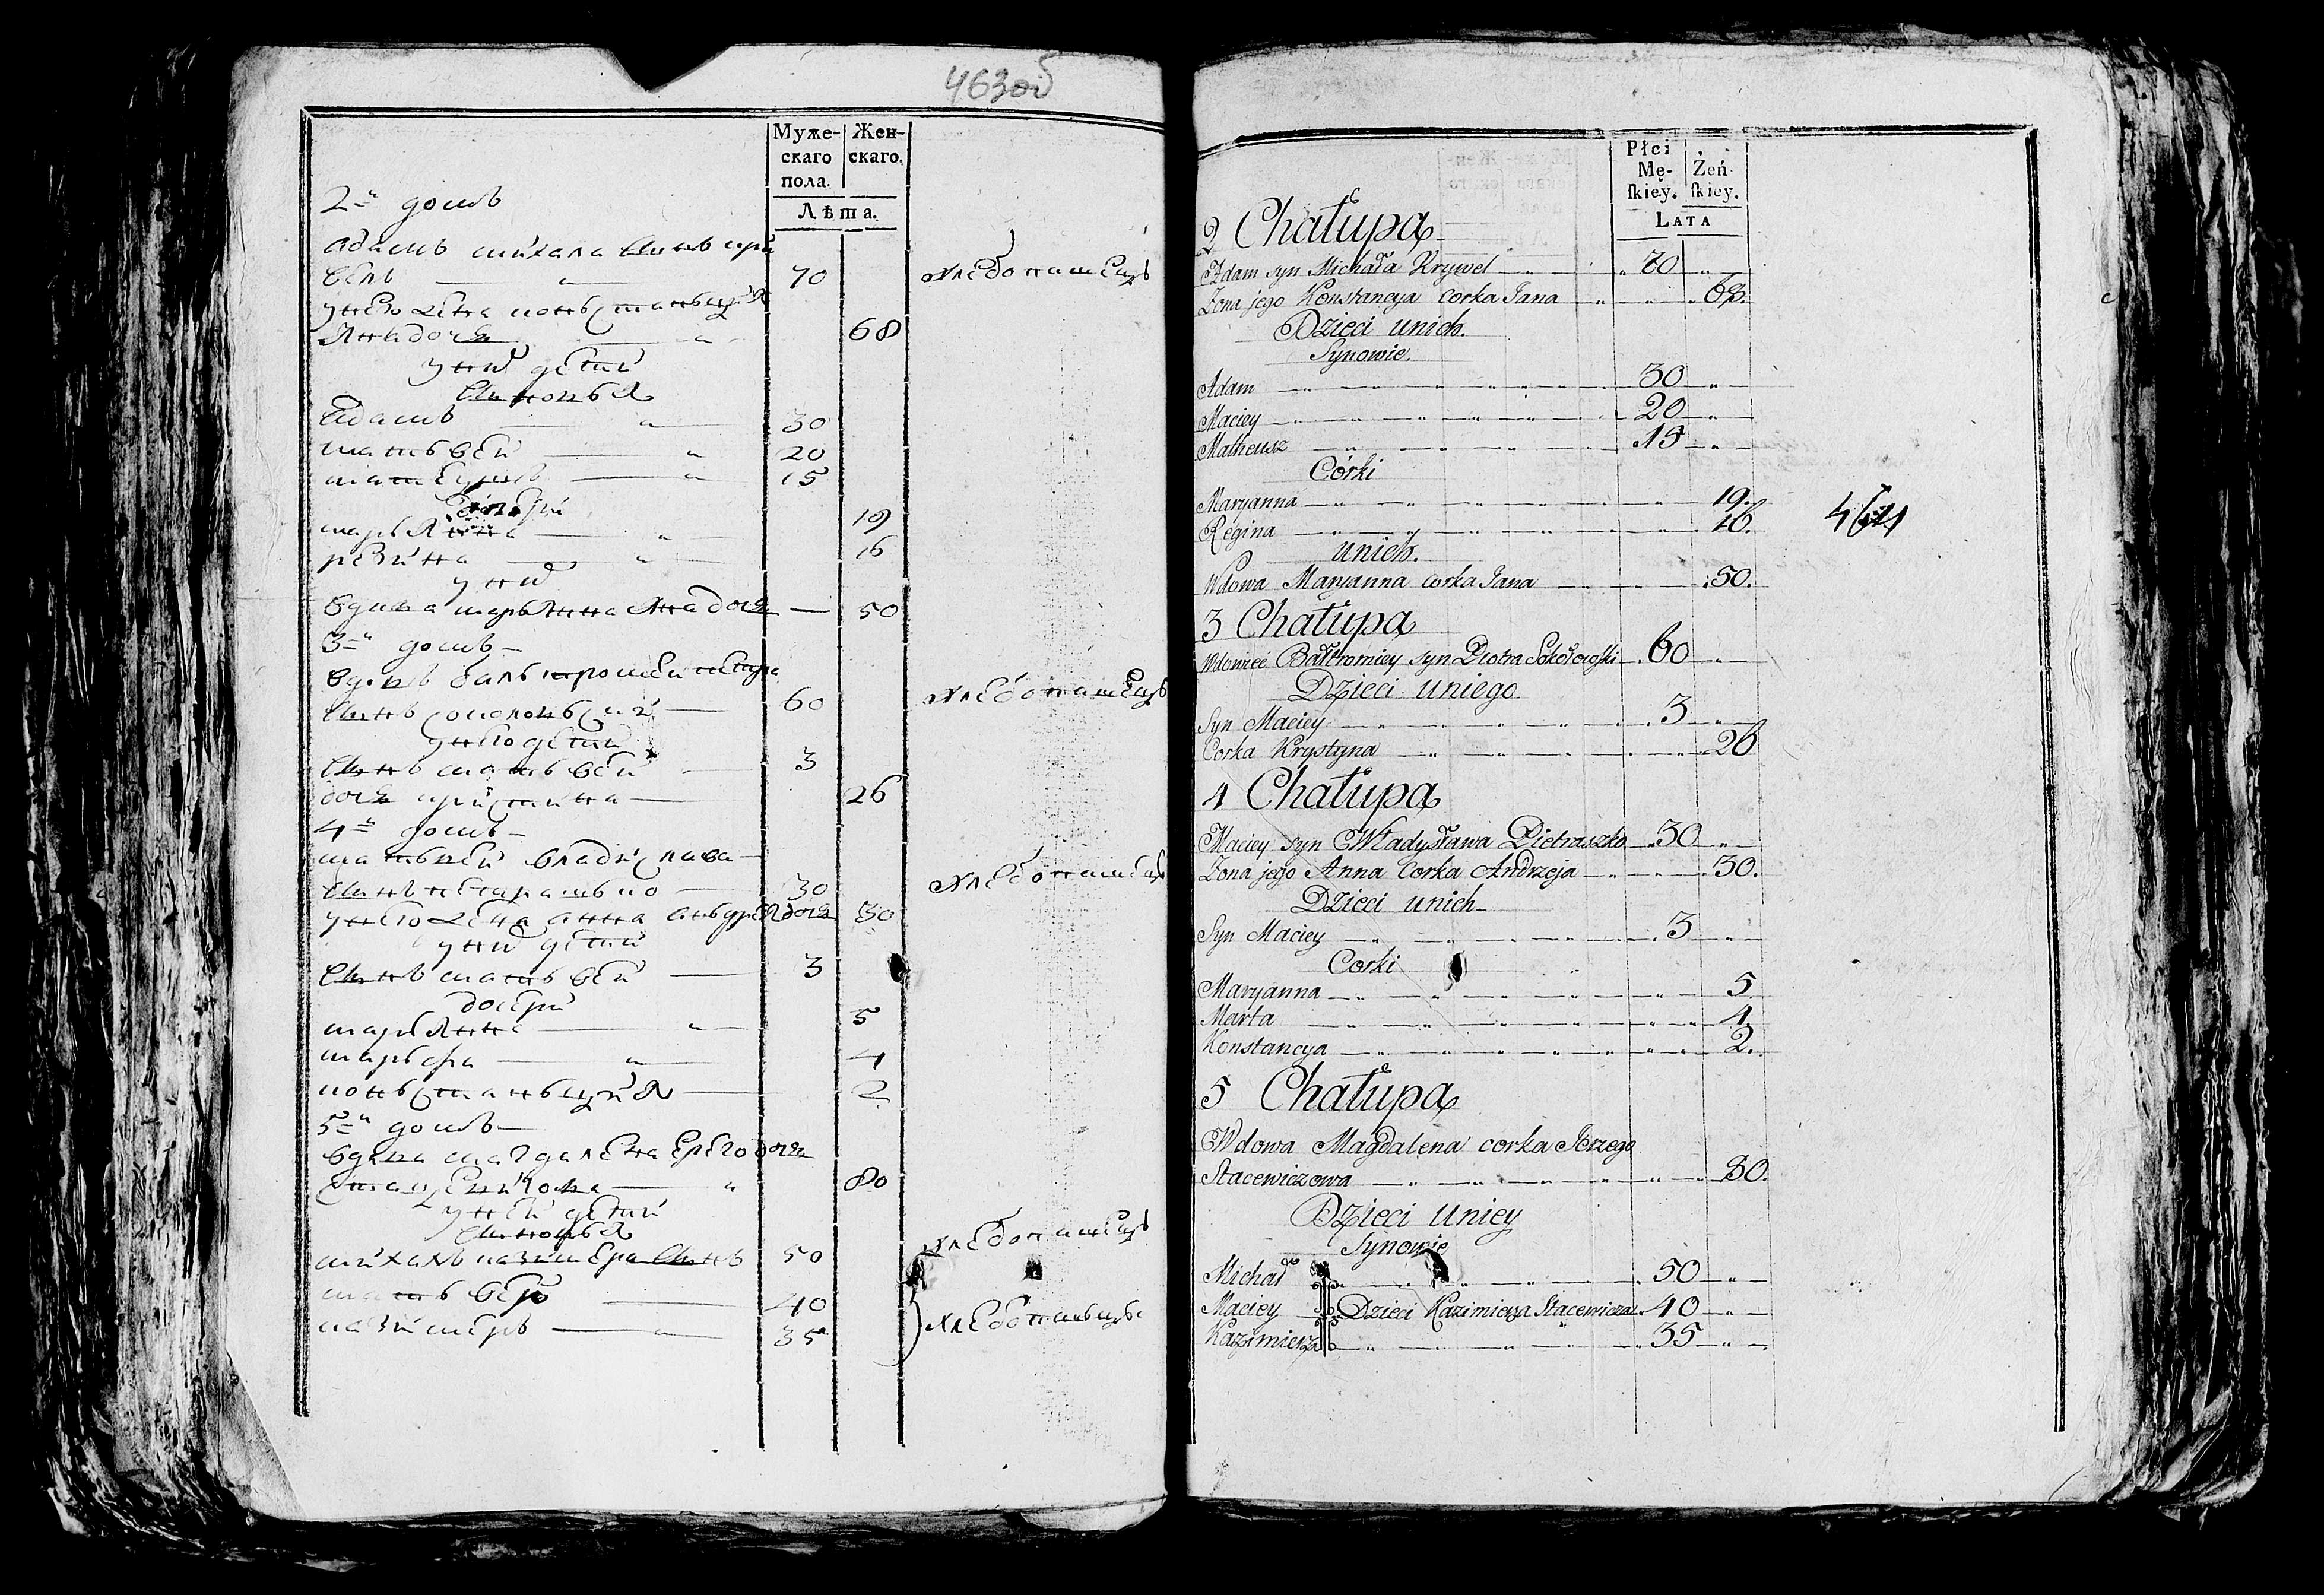 463об
Муже-
скаго
пола.
Жен-
скаго.
Лѣта.
2й домъ
адамъ михала сынъ кри
вель 70 хлебопашецъ
у него жена коньстаньцыя
яна дочь 68
у них детей
сыновья
адамъ 30
матьвей 20
матеушъ 15
дочери
марьянна 19
регина 16
у них
вдова марьянна яна дочь 50
3й домъ
вдовъ балтромей петра
сынъ соколовьский 60 хлебопашецъ
у него детей
сынъ матьвей 3
дочь кристина 26
4й домъ
матьвей владислава
сынъ петрашько 30 хлебопашецъ
у него жена анна аньдрея дочь 30
у них детей
сынъ матьвей 3
дочери
марьянна 5
марьфа 4
коньстаньцыя 2
5й домъ
вдова магдалена ерего дочь
стацевичова 80
у ней детей
сыновья
михалъ казимера сынъ 50 хлебопашецъ
матьвей 40
казимеръ 35 хлебопашьцы
Płci
Mę-
skiey.
Żeń-
skiey.
LATA
2 Chałupa
Adam syn Michała Krywel 70
Żona jego Konstancya corka Jana 68.
Dzieci unich.
Synowie.
Adam 30
Maciey 20
Matheusz 15
Córki
Maryanna 19.
Regina 16.
unich.
Wdowa Maryanna corka Jana 50.
3 Chałupa
Wdowiec Bałtromiey syn Piotra Sokołowski 60
Dzieci uniego
Syn Maciey 3
Corka Krystyna 26
4 Chałupa
Maciey syn Władysława Pietraszko 30
Żona jego Anna Corka Andrzeja 30.
Dzieci unich
Syn Maciey 3
Corki
Maryanna 5
Marta 4
Konstancya 2.
5 Chałupa
Wdowa Magdalena corka Jerzego
Stacewiczowa 80.
Dzieci Uniey
Synowie
Michał 50
Maciey Dzieci Kazimierza Stacewicza 40
Kazimierz 35